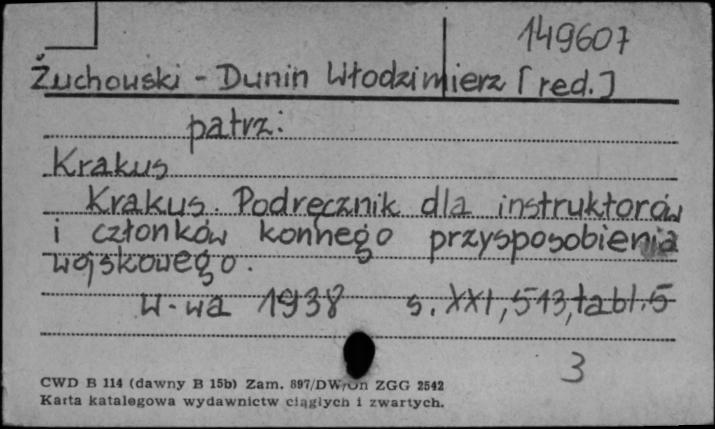 149607
Żuchowski - Dunin Włodzimierz [red.]
patrz:
Krakus
Krakus. Podręcznik dla instruktorów
i członków konnego przysposobienia
wojskowego.
W-wa 1938 s. XXI, 513, tabl. 5
3
CWD B 114 (dawny B 15b) Zam. 897/DW/Dn ZGG 2542
Karta katalogowa wydawnictw ciągłych i zwartych.